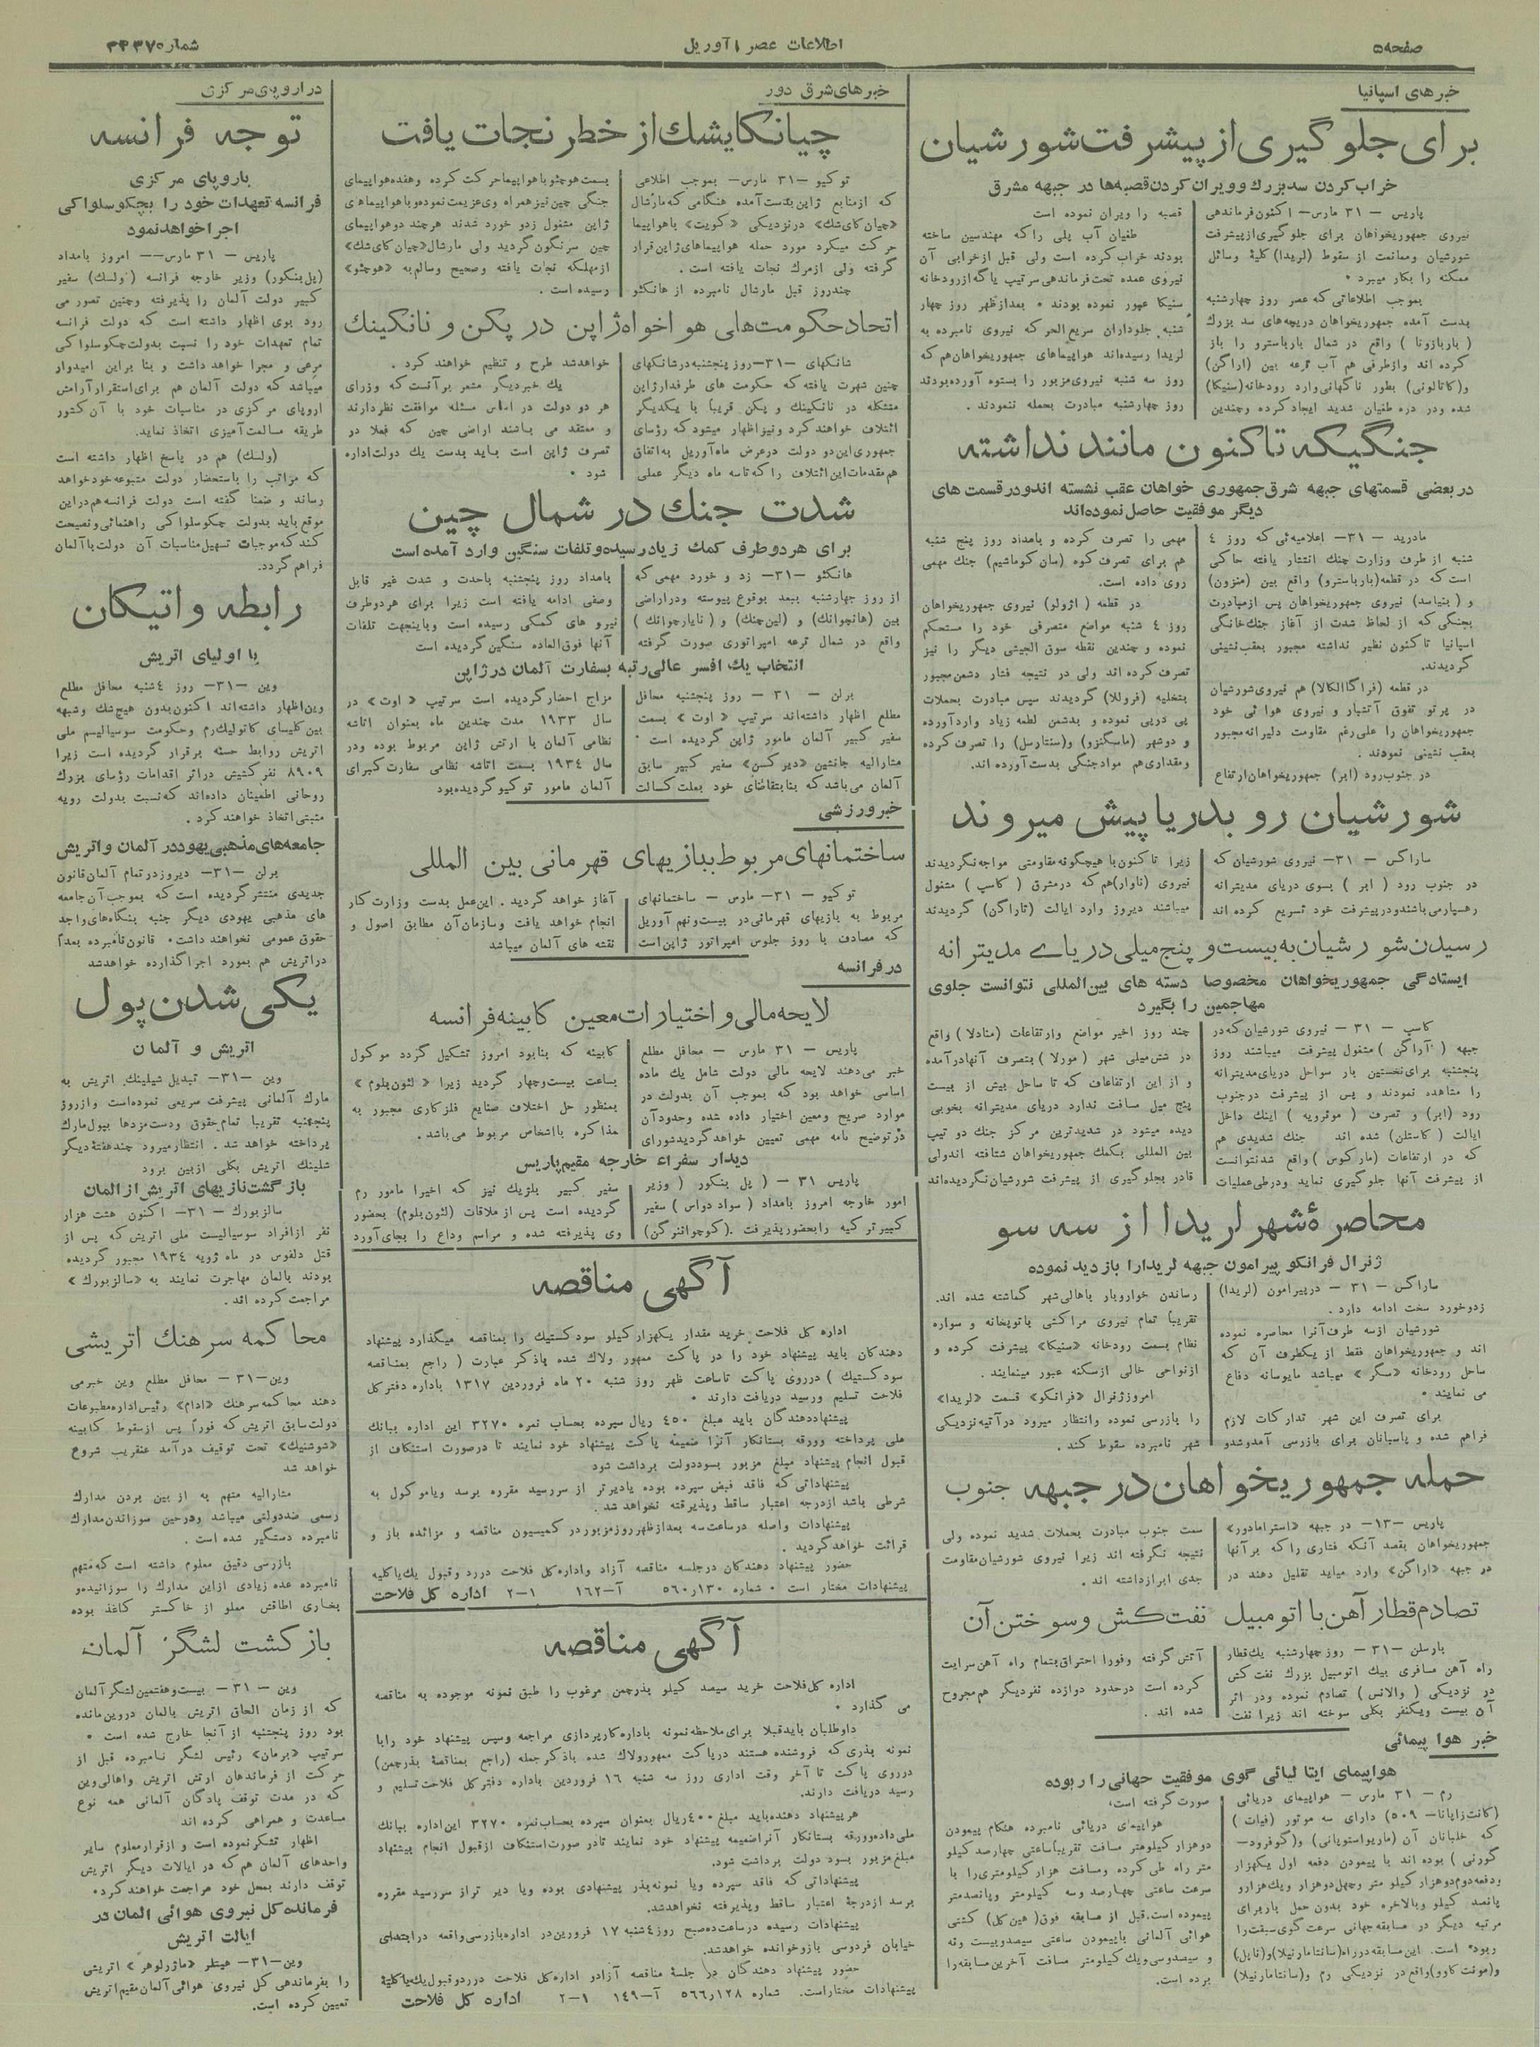 صفحه ۵
اطلاعات عصر ۱ آوریل
شماره ۳۴۳۷۰
خبرهای اسپانیا
برای جلوگیری از پیشرفت شورشیان
خراب کردن سد بزرك و ویران کردن قصبه‌ها در جبهه مشرق
پاریس – ۳۱ مارس – اکنون فرماندهی
نیروی جمهوریخواهان برای جلوگیری از پیشرفت
شورشیان وممانعت از سقوط (لریدا) کلیهٔ وسائل
ممکنه را بکار میبرد .
بموجب اطلاعاتی که عصر روز چهارشنبه
بدست آمده جمهوریخواهان دریچه‌های سد بزرك
( باربازونا ) واقع در شمال بارباسترو را باز
کرده اند وازطرفی هم آب ترعه بین (اراگن)
و(کاتالونی) بطور ناگهانی وارد رودخانه (سنیکا)
شده ودر دره طغیان شدید ایجاد کرده وچندین
قصبه را ویران نموده است
طغیان آب پلی راکه مهندسین ساخته
بودند خراب کرده است ولی قبل از خرابی آن
نیروی عمده تحت فرماندهی سرتیپ یاگه از رودخانه
سنیکا عبور نموده بودند . بعد از ظهر روز چهار
شنبه جلوداران سریع الحرکه نیروی نامبرده به
لریدا رسیده‌اند هواپیماهای جمهوریخواهان هم که
روز سه شنبه نیروی مزبور را بستوه آورده بودند
روز چهارشنبه مبادرت بحمله ننمودند .
جنگیکه تاکنون مانند نداشته
در بعضی قسمتهای جبهه شرق جمهوری خواهان عقب نشسته اند ودر قسمت های
دیگر موفقیت حاصل نموده‌اند
مادرید – ۳۱– اعلامیه‌ئی که روز ٤
شنبه از طرف وزارت جنك انتشار یافته حاکی
است که در قطعه (بارباسترو) واقع بین (منزون)
و ( بنیاسد) نیروی جمهوریخواهان پس از مبادرت
بجنگی که از لحاظ شدت از آغاز جنك خانگی
اسپانیا تاکنون نظیر نداشته مجبور بعقب نشینی
گردیدند.
در قطعه (فراگا الکالا) هم نیروی شورشیان
در پرتو تفوق آتشبار و نیروی هوائی خود
جمهوریخواهان را علی رغم مقاومت دلیرانه مجبور
بعقب نشینی نمودند .
در جنوب رود (ابر) جمهوریخواهان ارتفاع
مهمی را تصرف کرده و بامداد روز پنج شنبه
هم برای تصرف کوه (سان کوماشیم) جنك مهمی
روی داده است.
در قطعه ( اژولو) نیروی جمهوریخواهان
روز ٤ شنبه مواضع متصرفی خود را مستحکم
نموده و چندین نقطه سوق الجیشی دیگر را نیز
تصرف کرده اند ولی در نتیجه فشار دشمن مجبور
بتخلیه (فروللا) گردیدند سپس مبادرت بحملات
پی درپی نموده و بدشمن لطمه زیاد وارد آورده
و دوشهر (ماسگنزو) و(سنتارسل) را تصرف کرده
ومقداری هم مواد جنگی بدست آورده اند.
شورشیان رو بدریا پیش میروند
ساراگس – ۳۱– نیروی شورشیان که
در جنوب رود ( ابر ) بسوی دریای مدیترانه
رهسپار می‌باشند ودر پیشرفت خود تسریع کرده اند
زیرا تاکنون با هیچگونه مقاومتی مواجه نگردیدند
نیروی (ناوار) هم که در مشرق ( کاسپ ) مشغول
میباشند دیروز وارد ایالت (تاراگن) گردیدند
رسیدن شورشیان به بیست و پنج میلی دریای مدیترانه
ایستادگی جمهوریخواهان مخصوصا دسته های بین‌المللی نتوانست جلوی
مهاجمین را بگیرد
کاسپ – ۳۱ – نیروی شورشیان که در
جبهه ( آراگن ) مشغول پیشرفت میباشند روز
پنجشنبه برای نخستین بار سواحل دریای مدیترانه
را مشاهده نمودند و پس از پیشرفت در جنوب
رود (ابر) و تصرف ( موئرویه ) اینك داخل
ایالت ( کاستلن) شده اند جنك شدیدی هم
که در ارتفاعات (مارکوس) واقع شد نتوانست
از پیشرفت آنها جلوگیری نماید ودرطی عملیات
چند روز اخیر مواضع وارتفاعات (منادلا) واقع
در شش میلی شهر ( مورلا ) بتصرف آنها درآمده
و از این ارتفاعات که تا ساحل بیش از بیست
پنج میل مسافت ندارد دریای مدیترانه بخوبی
دیده میشود در شدیدترین مرکز جنك دو تیپ
بین المللی بکمك جمهوریخواهان شتافته اند ولی
قادر بجلوگیری از پیشرفت شورشیان نگردیده‌اند
محاصرهٔ شهر لریدا از سه سو
ژنرال فرانکو پیرامون جبهه لریدا را بازدید نموده
ساراگس – ۳۱ – در پیرامون (لریدا)
زدوخورد سخت ادامه دارد .
شورشیان ازسه طرف آنرا محاصره نموده
اند و جمهوریخواهان فقط از یکطرف آن که
ساحل رودخانه «سگر» میباشد مایوسانه دفاع
می نمایند .
برای تصرف این شهر تدارکات لازم
فراهم شده و پاسبانان برای بازرسی آمدوشدو
رساندن خواروبار باهالی شهر گماشته شده اند.
تقریباً تمام نیروی مراکشی باتوپخانه و سواره
نظام بسمت رودخانه «سنیکا» پیشرفت کرده و
ازنواحی خالی ازسکنه عبور مینمایند .
امروز ژنرال «فرانکو» قسمت «لریدا»
را بازرسی نموده وانتظار میرود در آتیه نزدیکی
شهر نامبرده سقوط کند .
حمله جمهوریخواهان در جبهه جنوب
پاریس –۱۳– در جبهه «استرامادور»
جمهوریخواهان بقصد آنکه فشاری را که بر آنها
در جبهه «اراگن» وارد میاید تقلیل دهند در
سمت جنوب مبادرت بحملات شدید نموده ولی
نتیجه نگرفته اند زیرا نیروی شورشیان مقاومت
جدی ابراز داشته اند .
تصادم قطار آهن با اتومبیل نفت‌کش و سوختن آن
بارسلن –۳۱– روز چهارشنبه یك قطار
راه آهن مسافری بیك اتومبیل بزرك نفت کش
در نزدیکی ( والانس ) تصادم نموده ودر اثر
آن بیست ویکنفر بکلی سوخته اند زیرا نفت
آتش گرفته وفورا احتراق بتمام راه آهن سرایت
کرده است در حدود دوازده نفر دیگر هم مجروح
شده اند .
خبر هوا پیمائی
هواپیمای ایتالیائی گوی موفقیت جهانی را ربوده
رم – ۳۱ مارس – هواپیمای دریائی
(کانت زاپاتا– ۵۰۹) دارای سه موتور (فیات )
که خلبانان آن (ماریواستوپانی) و(کوفرود–
گورنی ) بوده اند با پیمودن دفعه اول یکهزار
ودفعه دوم دوهزار کیلو متر وچهل دوهزار ویك هزارو
پانصد کیلو وبالاخره خود بدون حمل بار برای
مرتبه دیگر در مسابقه جهانی سرعت گوی سبقت را
ربوده است. این مسابقه دور راه (سانتامارنیلا) و(ناپل)
و(مونت کاوو) واقع در نزدیکی رم و(سانتامارنیلا)
صورت گرفته است،
هواپیمای دریائی نامبرده هنگام پیمودن
دوهزار کیلومتر مسافت تقریباً ساعتی چهارصد کیلو
متر راه طی کرده ومسافت هزار کیلومتری را با
سرعت ساعتی چهارصد وسه کیلومتر وپانصدمتر
پیموده است. قبل از مسابقه فوق( هین کل) کشتی
هوائی آلمانی باپیمودن ساعتی سیصدوبیست ونه
و سیصدوسی ویك کیلومتر مسافت آخرین مسابقه را
برده است.
خبرهای شرق دور
چیانکایشك از خطر نجات یافت
توکیو –۳۱ مارس– بموجب اطلاعی
که ازمنابع ژاپن بدست آمده هنگامی که مارشال
«چیان کای شك» در نزدیکی «کویت» با هواپیما
حرکت میکرد مورد حمله هواپیماهای ژاپن قرار
گرفته ولی از مرك نجات یافته است .
چند روز قبل مارشال نامبرده از هانکئو
بسمت هوچئو با هواپیما حرکت کرده وهفده هواپیمای
جنگی چین نیز همراه وی عزیمت نموده و با هواپیماهای
ژاپن مشغول زدو خورد شدند هرچند دو هواپیمای
چین سرنگون گردید ولی مارشال «چیان کای شك»
از مهلکه نجات یافته وصحیح وسالم به «هوچئو»
رسیده است .
اتحاد حکومت‌های هواخواه ژاپن در پکن و نانکینك
شانگهای –۳۱– روز پنجشنبه درشانگهای
چنین شهرت یافته که حکومت های طرفدار ژاپن
متشکله در نانکینك و پکن قریباً با یکدیگر
ائتلاف خواهند کرد ونیز اظهار میشود که رؤسای
جمهوری این دو دولت در عرض ماه آوریل به اتفاق
هم مقدمات این ائتلاف را که تاسه ماه دیگر عملی
خواهدشد طرح و تنظیم خواهند کرد .
یك خبر دیگر مشعر بر آنست که وزرای
هر دو دولت در اساس مسئله موافقت نظر دارند
و معتقد می باشند اراضی چین که فعلا در
تصرف ژاپن است باید بدست یك دولت اداره
شود .
شدت جنك در شمال چین
برای هر دو طرف کمك زیاد رسیده و تلفات سنگین وارد آمده است
هانکئو –۳۱– زد و خورد مهمی که
از روز چهارشنبه ببعد بوقوع پیوسته ودراراضی
بین (هانچوانك) و (لین چنك) و ( نایارچوانك )
واقع در شمال ترعه امپراتوری صورت گرفته
بامداد روز پنجشنبه باحدت و شدت غیر قابل
وصفی ادامه یافته است زیرا برای هردوطرف
نیرو های کمکی رسیده است وباینجهت تلفات
آنها فوق العاده سنگین گردیده است
انتخاب یك افسر عالی رتبه بسفارت آلمان در ژاپن
برلن – ۳۱ – روز پنجشنبه محافل
مطلع اظهار داشته‌اند سرتیپ « اوت » بسمت
سفیر کبیر آلمان مامور ژاپن گردیده است .
مشارالیه جانشین «دیرکسن» سفیر کبیر سابق
آلمان می‌باشد که بنا بتقاضای خود بعلت کسالت
مزاج احضار گردیده است سرتیپ « اوت » در
سال ۱۹۳۳ مدت چندین ماه بعنوان اتاشه
نظامی آلمان با ارتش ژاپن مربوط بوده ودر
سال ۱۹۳٤ بسمت اتاشه نظامی سفارت کبرای
آلمان مامور توکیو گردیده بود
خبر ورزشی
ساختمانهای مربوط ببازیهای قهرمانی بین المللی
توکیو –۳۱ مارس – ساختمانهای
مربوط به بازیهای قهرمانی در بیست ونهم آوریل
که مصادف با روز جلوس امپراتور ژاپن است
آغاز خواهد گردید . این عمل بدست وزارت کار
انجام خواهد یافت وسازمان آن مطابق اصول و
نقشه های آلمان میباشد
در فرانسه
لایحه مالی و اختیارات معین کابینه فرانسه
پاریس – ۳۱ مارس – محافل مطلع
خبر می‌دهند لایحه مالی دولت شامل یك ماده
اساسی خواهد بود که بموجب آن بدولت در
موارد صریح ومعین اختیار داده شده وحدود آن
در توضیح نامه مهمی تعیین خواهد گردید شورای
کابینه که بنابود امروز تشکیل گردد موکول
بساعت بیست وچهار گردید زیرا « لئون بلوم »
بمنظور حل اختلاف صنایع فلزکاری مجبور به
مذاکره با اشخاص مربوط می‌باشد .
دیدار سفراء خارجه مقیم پاریس
پاریس ۳۱ – ( پل بنکور ) وزیر
امور خارجه امروز بامداد ( سواد دواس ) سفیر
کبیر ترکیه را بحضور پذیرفت .(کوچوانترگن)
سفیر کبیر بلژیك نیز که اخیرا مامور رم
گردیده است پس از ملاقات (لئون بلوم) بحضور
وی پذیرفته شده و مراسم وداع را بجای آورد
آگهی مناقصه
اداره کل فلاحت خرید مقدار یکهزار کیلو سودکستیك را بمناقصه میگذارد پیشنهاد
دهندگان باید پیشنهاد خود را در پاکت ممهور ولاك شده باذکر عبارت ( راجع بمناقصه
سودکستیك ) درروی پاکت تاساعت ظهر روز شنبه ۲۰ ماه فروردین ۱۳۱۷ باداره دفتر کل
فلاحت تسلیم ورسید دریافت دارند .
پیشنهاددهندگان باید مبلغ ٤۵۰ ریال سپرده بحساب نمره ۳۲۷۰ این اداره ببانك
ملی پرداخته وورقه بستانکار آنرا ضمیمه پاکت پیشنهاد خود نمایند تا درصورت استنکاف از
قبول انجام پیشنهاد مبلغ مزبور بسوددولت برداشت شود
پیشنهاداتی که فاقد قبض سپرده بوده یادیرتر از سررسید مقرره برسد ویاموکول به
شرطی باشد ازدرجه اعتبار ساقط وپذیرفته نخواهدشد.
پیشنهادات واصله درساعت سه بعدازظهر روز مزبور در کمیسیون مناقصه و مزائده باز و
قرائت خواهدگردید .
حضور پیشنهاد دهندگان درجلسه مناقصه آزاد واداره کل فلاحت دررد وقبول یك یاکلیه
پیشنهادات مختار است . شماره ۱۳۰ر۵٦۰ آ–۱٦۲ ۱–۲ اداره کل فلاحت
آگهی مناقصه
اداره کل فلاحت خرید سیصد کیلو بذرچمن مرغوب را طبق نمونه موجوده به مناقصه
می گذارد .
داوطلبان بایدقبلا برای ملاحظه نمونه باداره کارپردازی مراجعه وسپس پیشنهاد خود رابا
نمونه بذری که فروشنده هستند درپاکت ممهورولاك شده باذکر جمله (راجع بمناقصهٔ بذرچمن)
درروی پاکت تا آخر وقت اداری روز سه شنبه ۱٦ فروردین باداره دفتر کل فلاحت تسلیم و
رسید دریافت دارند.
هر پیشنهاد دهنده‌باید مبلغ ٤۰۰ریال بعنوان سپرده بحساب نمره ۳۲۷۰ این اداره ببانك
ملی داده وورقه بستانکار آنرا ضمیمه پیشنهاد خود نمایند تادر صورت استنکاف ازقبول انجام پیشنهاد
مبلغ مزبور بسود دولت برداشت شود.
پیشنهاداتی که فاقد سپرده ویا نمونه بذر پیشنهادی بوده ویا دیر تراز سررسید مقرره
برسد ازدرجهٔ اعتبار ساقط وپذیرفته نخواهدشد.
پیشنهادات رسیده درساعت ده صبح روز ٤شنبه ۱۷ فروردین در اداره بازرسی واقعه درابتدای
خیابان فردوسی باز وخوانده خواهدشد.
حضور پیشنهاد دهندگان در جلسهٔ مناقصه آزادو اداره کل فلاحت دررد وقبول یك یاکلیهٔ
پیشنهادات مختاراست. شماره ۱۲۸ر۵٦٦ آ–۱٤۹ ۱–۲ اداره کل فلاحت
در اروپای مرکزی
توجه فرانسه
باروپای مرکزی
فرانسه تعهدات خود را بچکوسلواکی
اجرا خواهد نمود
پاریس – ۳۱ مارس–– امروز بامداد
(پل بنکور) وزیر خارجه فرانسه (ولسك) سفیر
کبیر دولت آلمان را پذیرفته وچنین تصور می
رود بوی اظهار داشته است که دولت فرانسه
تمام تعهدات خود را نسبت بدولت چکوسلواکی
مرعی و مجرا خواهد داشت و بنا بر این امیدوار
میباشد که دولت آلمان هم برای استقرار آرامش
اروپای مرکزی در مناسبات خود با آن کشور
طریقه مسالمت آمیزی اتخاذ نماید.
(ولسك) هم در پاسخ اظهار داشته است
که مراتب را باستحضار دولت متبوعه خود خواهد
رساند و ضمنا گفته است دولت فرانسه هم در این
موقع باید بدولت چکوسلواکی راهنمائی ونصیحت
کند که موجبات تسهیل مناسبات آن دولت با آلمان
فراهم گردد.
رابطه واتیکان
با اولیای اتریش
وین –۳۱– روز ٤شنبه محافل مطلع
وین اظهار داشته‌اند اکنون بدون هیچ شك وشبهه
بین کلیسای کاتولیك رم وحکومت سوسیالیسم ملی
اتریش روابط حسنه برقرار گردیده است زیرا
۸۹۰۹ نفر کشیش دراثر اقدامات رؤسای بزرك
روحانی اطمینان داده‌اند که نسبت بدولت رویه
مثبتی اتخاذ خواهند کرد .
جامعه‌های مذهبی یهود در آلمان و اتریش
برلن –۳۱– دیروز در تمام آلمان قانون
جدیدی منتشر گردیده است که بموجب آن جامعه
های مذهبی یهودی دیگر جنبه بنگاه‌های واجد
حقوق عمومی نخواهند داشت. قانون نامبرده بعداً
دراتریش هم بمورد اجرا گذارده خواهدشد
یکی شدن پول
اتریش و آلمان
وین –۳۱– تبدیل شیلینك اتریش به
مارك آلمانی پیشرفت سریعی نموده‌است وازروز
پنجشنبه تقریبا تمام حقوق ودست مزدها بپول مارك
پرداخته خواهد شد . انتظار میرود چند هفتهٔ دیگر
شلینك اتریش بکلی از بین برود
بازگشت نازیهای اتریش از المان
سالزبورك –۳۱– اکنون هشت هزار
نفر ازافراد سوسیالیست ملی اتریش که پس از
قتل دلفوس در ماه ژویه ۱۹۳٤ مجبور گردیده
بودند بالمان مهاجرت نمایند به «سالزبورك»
مراجعت کرده اند .
محاکمه سرهنك اتریشی
وین–۳۱– محافل مطلع وین خبر می
دهند محاکمه سرهنك «ادام» رئیس اداره مطبوعات
دولت سابق اتریش که فوراً پس ازسقوط کابینه
«شوشنیك» تحت توقیف درآمد عنقریب شروع
خواهد شد
مشارالیه متهم به از بین بردن مدارك
رسمی ضددولتی میباشد ودرحین سوزاندن مدارك
نامبرده دستگیر شده است .
بازرسی دقیق معلوم داشته است که متهم
نامبرده عده زیادی ازاین مدارك را سوزانیده و
بخاری اطاقش مملو از خاکستر کاغذ بوده
بازگشت لشگر آلمان
وین – ۳۱ – بیست وهفتمین لشگر آلمان
که از زمان الحاق اتریش بالمان دروین مانده
بود روز پنجشنبه از آنجا خارج شده است .
سرتیپ «برمان» رئیس لشگر نامبرده قبل از
حرکت از فرماندهان ارتش اتریش واهالی وین
که در مدت توقف پادگان آلمانی همه نوع
مساعدت و همراهی کرده اند
اظهار تشکر نموده است و ازقرار معلوم سایر
واحدهای آلمان هم که در ایالات دیگر اتریش
توقف دارند بمحل خود مراجعت خواهند کرد.
فرمانده کل نیروی هوائی المان در
ایالت اتریش
وین–۳۱– هیتلر «ماژرلوهر» اتریشی
را بفرماندهی کل نیروی هوائی آلمان مقیم اتریش
تعیین کرده است.